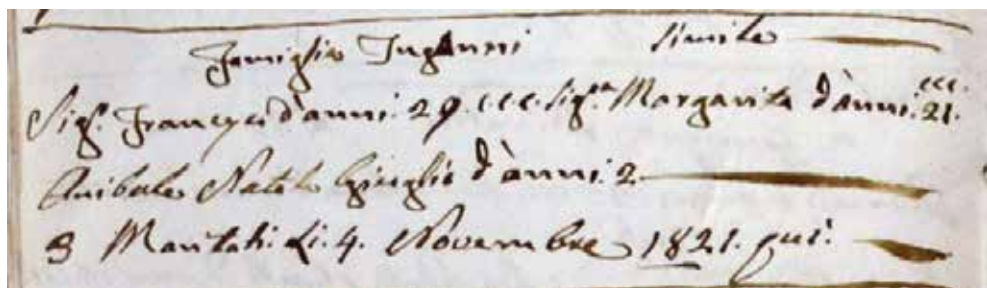 Famiglia Inganni simile
Sigr. Francesco d'anni. 29. ccc. Sigra Margarita d'anni. 21. ccc.
Anibale Natale figlio d'anni. 2.
3 Maritati li. 4. Novembre 1821. qui.